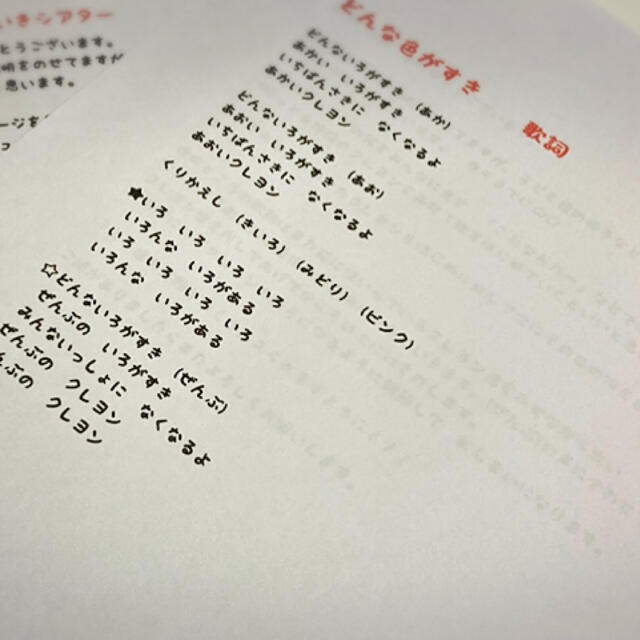 いきシアター
とうございます。
明をのせてますが
思います。
ージを
どんな色がすき 歌詞
どんないろがすき (あか)
あかい いろがすき
いちばんさきに なくなるよ
あかいクレヨン
どんないろがすき (あお)
あおい いろがすき
いちばんさきに なくなるよ
あおいクレヨン
くりかえし (きいろ) (みどり) (ピンク)
★いろ いろ いろ いろ
いろんな いろがある
いろ いろ いろ いろ
いろんな いろがある
☆どんないろがすき (ぜんぶ)
ぜんぶの いろがすき
みんないっしょに なくなるよ
ぜんぶの クレヨン
んぶの クレヨン